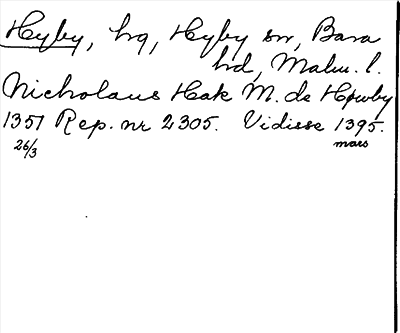 Hyby, hg, Hyby sn, Bara
hd, Malm. l.
Nicholaus Hak M. de Høwby
1351 Rep. nr 2305. Vidisse 1395.
26/3 mars